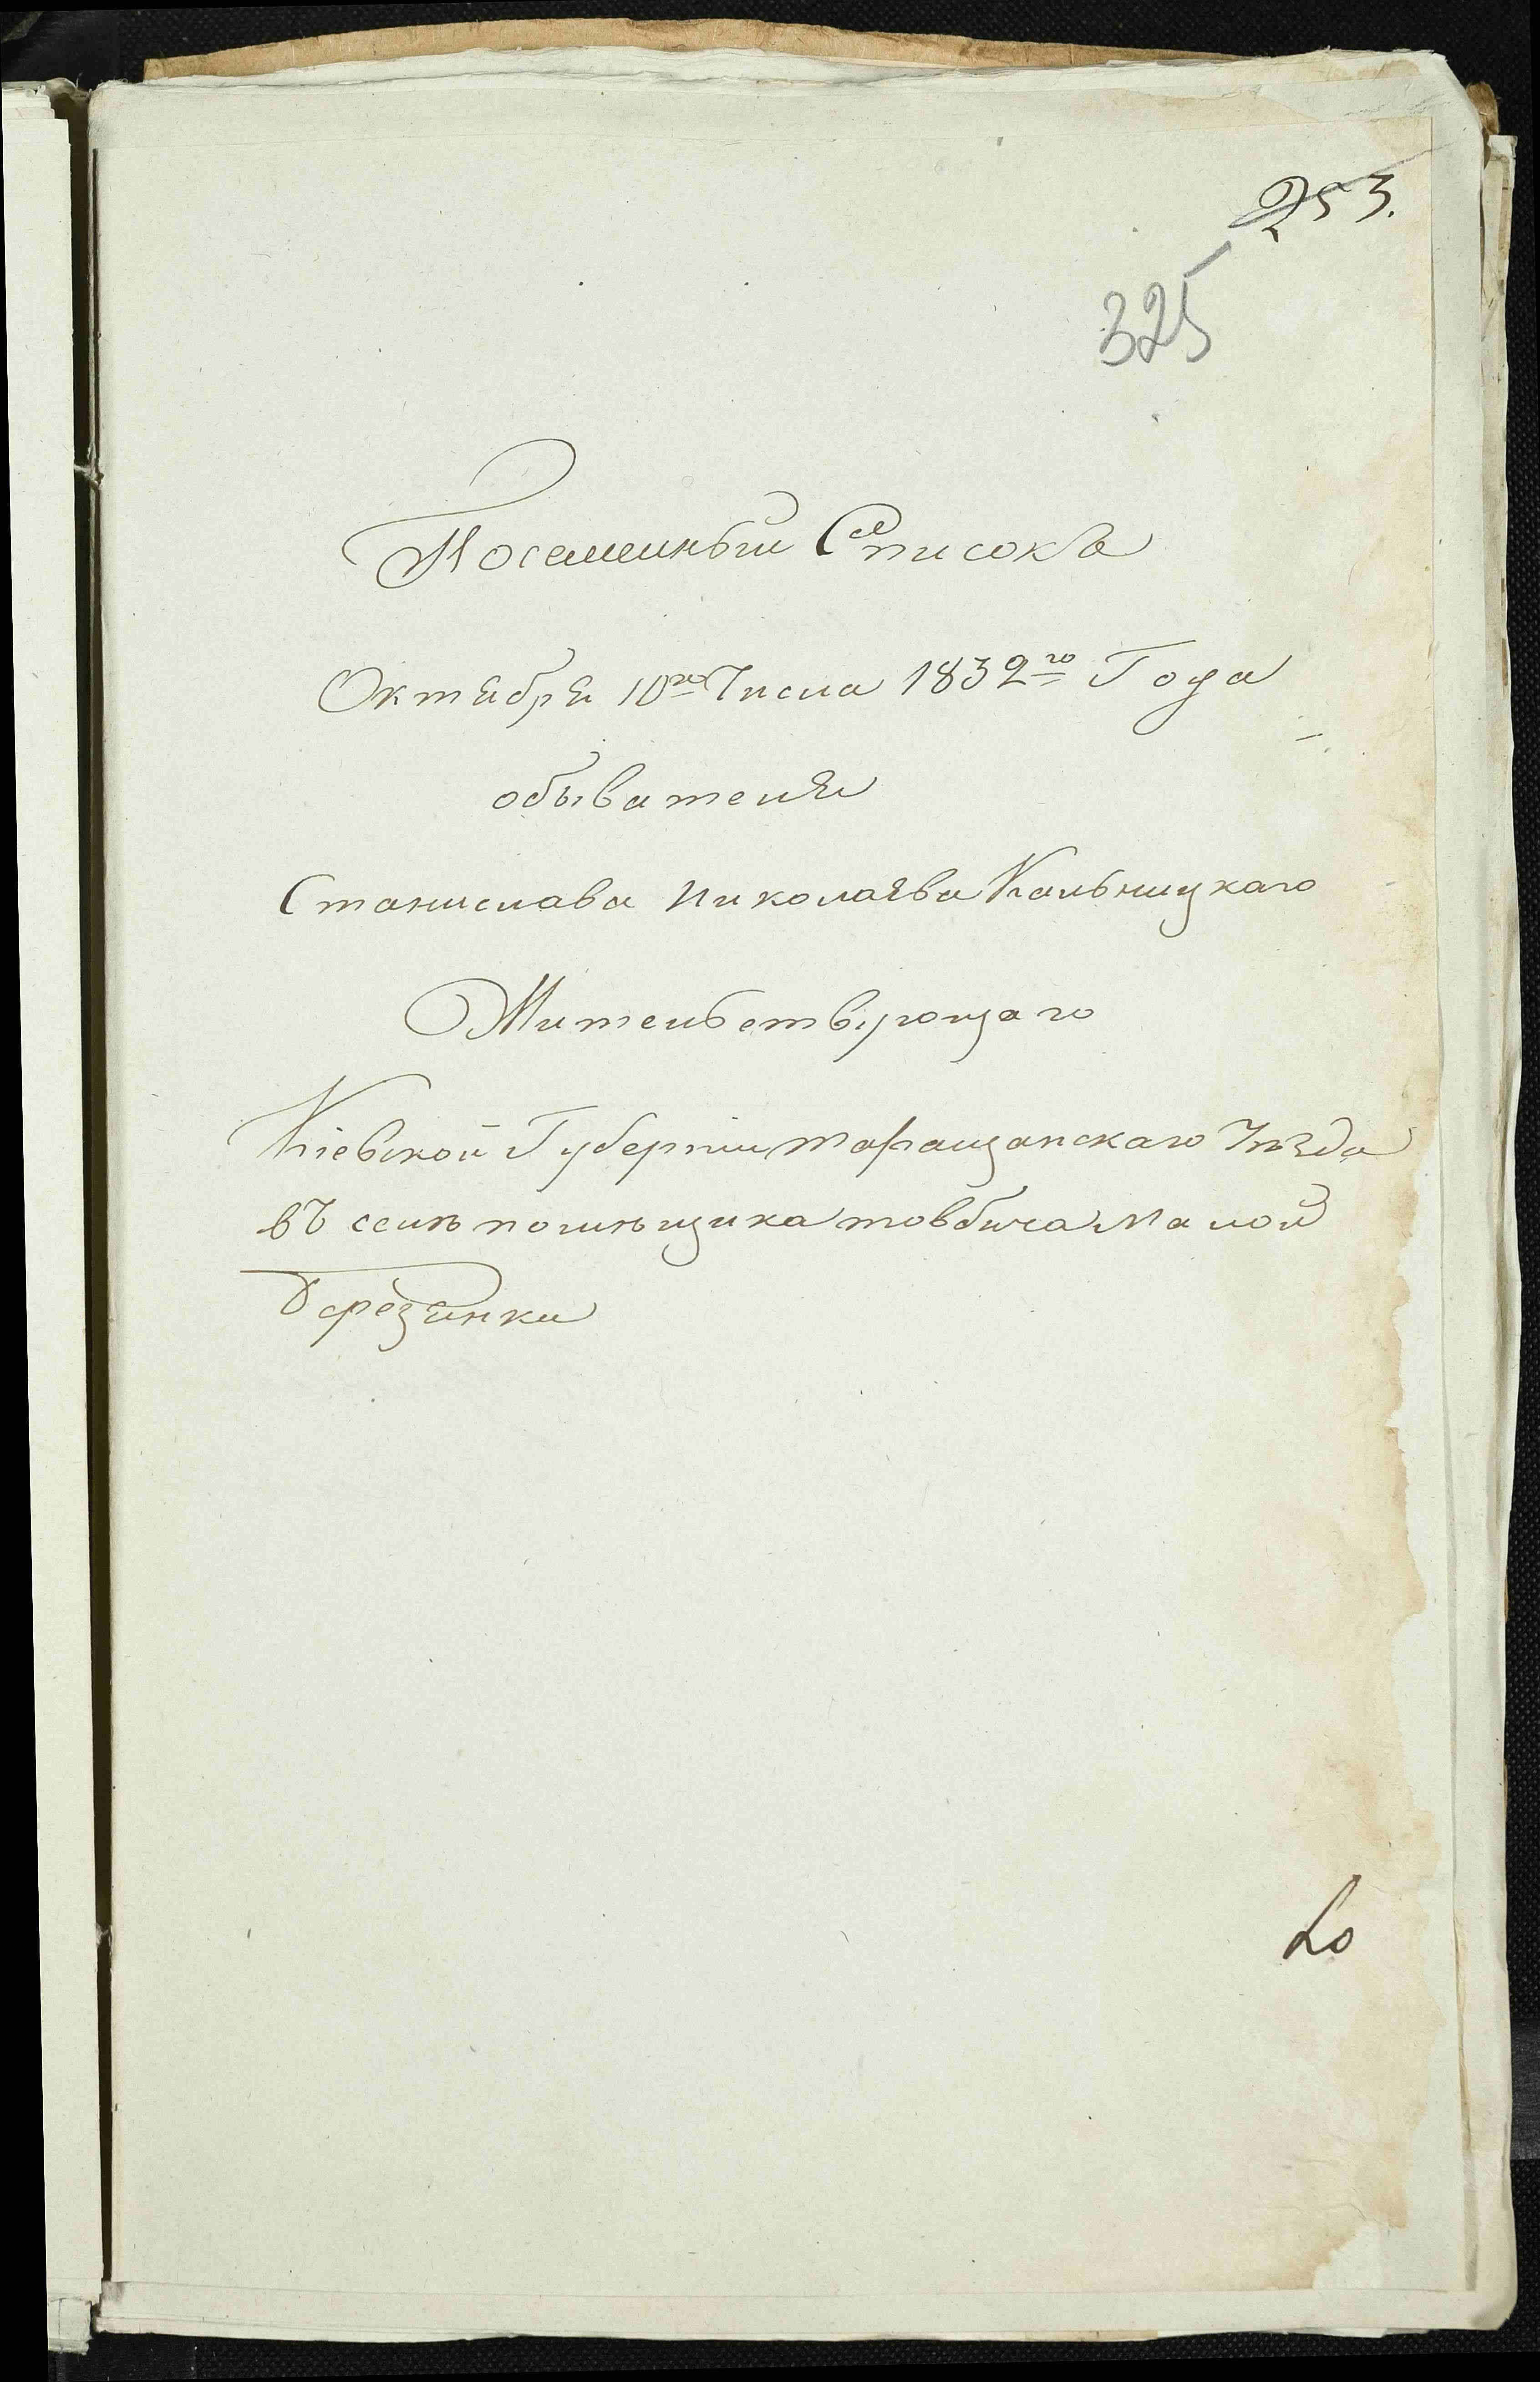 253.
325
Посемейный Списокъ
Октября 10го Числа 1832го Года
обывателя
Станислава Николаева Кальницкаго
Жительствующаго
Кіевской Губерніи таращанскаго Уѣзда
въ селѣ помѣщика товбича Малой
Березянки